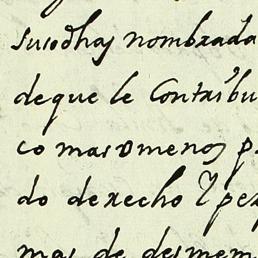 susodhas nombrada
deque le Contribu
co mas o menos p
do derecho y pex
mas de desmem